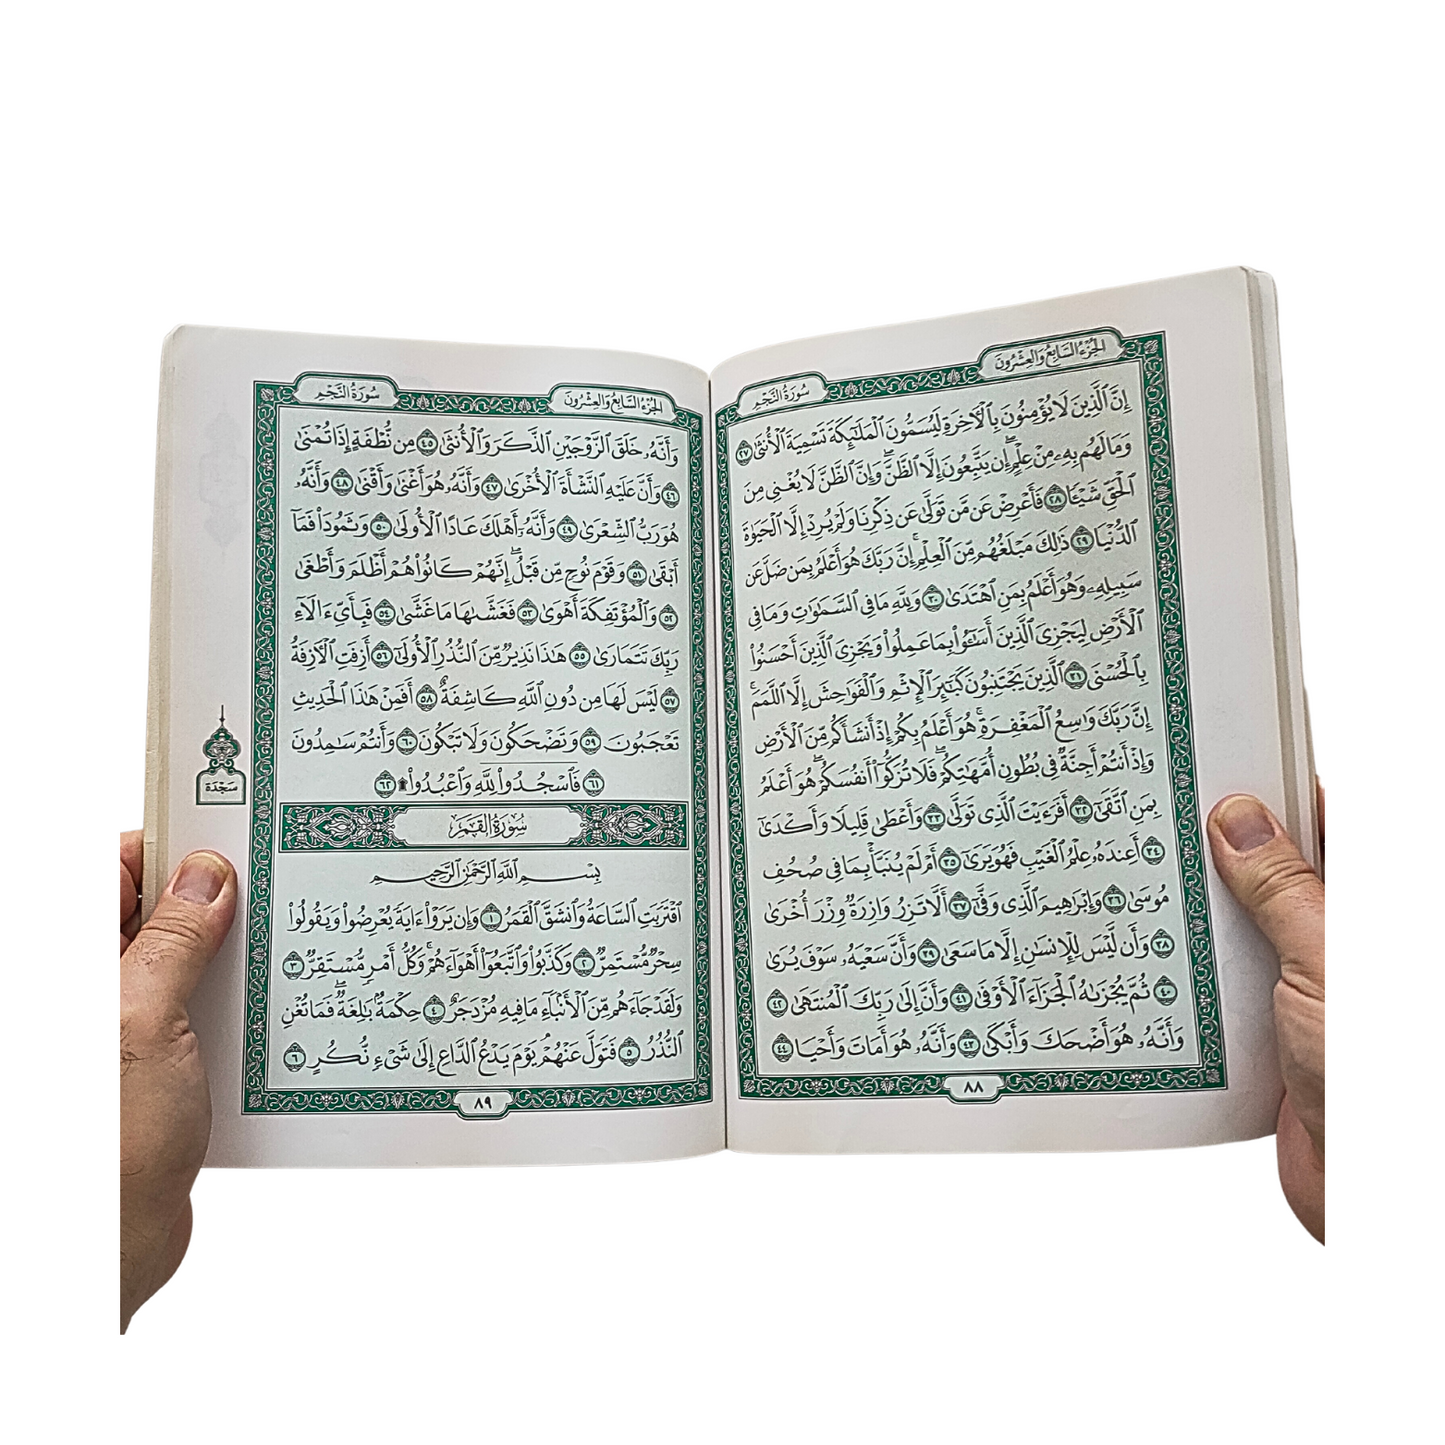 الجُزْءُ السَّابِعُ وَالعِشْرُونَ
سُورَةُ النَّجْمِ
إِنَّ ٱلَّذِينَ لَا يُؤْمِنُونَ بِٱلْأَخِرَةِ لَيُسَمُّونَ ٱلْمَلَٰٓئِكَةَ تَسْمِيَةَ ٱلْأُنثَىٰ ٢٧
وَمَا لَهُم بِهِۦ مِنْ عِلْمٍ ۖ إِن يَتَّبِعُونَ إِلَّا ٱلظَّنَّ ۖ وَإِنَّ ٱلظَّنَّ لَا يُغْنِى مِنَ
ٱلْحَقِّ شَيْـًٔا ٢٨ فَأَعْرِضْ عَن مَّن تَوَلَّىٰ عَن ذِكْرِنَا وَلَمْ يُرِدْ إِلَّا ٱلْحَيَوٰةَ
ٱلدُّنْيَا ٢٩ ذَٰلِكَ مَبْلَغُهُم مِّنَ ٱلْعِلْمِ ۚ إِنَّ رَبَّكَ هُوَ أَعْلَمُ بِمَن ضَلَّ عَن
سَبِيلِهِۦ وَهُوَ أَعْلَمُ بِمَنِ ٱهْتَدَىٰ ٣٠ وَلِلَّهِ مَا فِى ٱلسَّمَٰوَٰتِ وَمَا فِى
ٱلْأَرْضِ لِيَجْزِىَ ٱلَّذِينَ أَسَٰٓـُٔوا۟ بِمَا عَمِلُوا۟ وَيَجْزِىَ ٱلَّذِينَ أَحْسَنُوا۟
بِٱلْحُسْنَى ٣١ ٱلَّذِينَ يَجْتَنِبُونَ كَبَٰٓئِرَ ٱلْإِثْمِ وَٱلْفَوَٰحِشَ إِلَّا ٱللَّمَمَ ۚ
إِنَّ رَبَّكَ وَٰسِعُ ٱلْمَغْفِرَةِ ۚ هُوَ أَعْلَمُ بِكُمْ إِذْ أَنشَأَكُم مِّنَ ٱلْأَرْضِ
وَإِذْ أَنتُمْ أَجِنَّةٌ فِى بُطُونِ أُمَّهَٰتِكُمْ ۖ فَلَا تُزَكُّوٓا۟ أَنفُسَكُمْ ۖ هُوَ أَعْلَمُ
بِمَنِ ٱتَّقَىٰٓ ٣٢ أَفَرَءَيْتَ ٱلَّذِى تَوَلَّىٰ ٣٣ وَأَعْطَىٰ قَلِيلًا وَأَكْدَىٰٓ
٣٤ أَعِندَهُۥ عِلْمُ ٱلْغَيْبِ فَهُوَ يَرَىٰٓ ٣٥ أَمْ لَمْ يُنَبَّأْ بِمَا فِى صُحُفِ
مُوسَىٰ ٣٦ وَإِبْرَٰهِيمَ ٱلَّذِى وَفَّىٰٓ ٣٧ أَلَّا تَزِرُ وَازِرَةٌ وِزْرَ أُخْرَىٰ
٣٨ وَأَن لَّيْسَ لِلْإِنسَٰنِ إِلَّا مَا سَعَىٰ ٣٩ وَأَنَّ سَعْيَهُۥ سَوْفَ يُرَىٰ
٤٠ ثُمَّ يُجْزَىٰهُ ٱلْجَزَآءَ ٱلْأَوْفَىٰ ٤١ وَأَنَّ إِلَىٰ رَبِّكَ ٱلْمُنتَهَىٰ ٤٢
وَأَنَّهُۥ هُوَ أَضْحَكَ وَأَبْكَىٰ ٤٣ وَأَنَّهُۥ هُوَ أَمَاتَ وَأَحْيَا ٤٤
٨٨
الجُزْءُ السَّابِعُ وَالعِشْرُونَ
سُورَةُ النَّجْمِ
وَأَنَّهُۥ خَلَقَ ٱلزَّوْجَيْنِ ٱلذَّكَرَ وَٱلْأُنثَىٰ ٤٥ مِن نُّطْفَةٍ إِذَا تُمْنَىٰ
٤٦ وَأَنَّ عَلَيْهِ ٱلنَّشْأَةَ ٱلْأُخْرَىٰ ٤٧ وَأَنَّهُۥ هُوَ أَغْنَىٰ وَأَقْنَىٰ ٤٨ وَأَنَّهُۥ
هُوَ رَبُّ ٱلشِّعْرَىٰ ٤٩ وَأَنَّهُۥٓ أَهْلَكَ عَادًا ٱلْأُولَىٰ ٥٠ وَثَمُودَا۟ فَمَآ
أَبْقَىٰ ٥١ وَقَوْمَ نُوحٍ مِّن قَبْلُ ۖ إِنَّهُمْ كَانُوا۟ هُمْ أَظْلَمَ وَأَطْغَىٰ
٥٢ وَٱلْمُؤْتَفِكَةَ أَهْوَىٰ ٥٣ فَغَشَّىٰهَا مَا غَشَّىٰ ٥٤ فَبِأَىِّ ءَالَآءِ
رَبِّكَ تَتَمَارَىٰ ٥٥ هَٰذَا نَذِيرٌ مِّنَ ٱلنُّذُرِ ٱلْأُولَىٰٓ ٥٦ أَزِفَتِ ٱلْأَزِفَةُ
٥٧ لَيْسَ لَهَا مِن دُونِ ٱللَّهِ كَاشِفَةٌ ٥٨ أَفَمِنْ هَٰذَا ٱلْحَدِيثِ
تَعْجَبُونَ ٥٩ وَتَضْحَكُونَ وَلَا تَبْكُونَ ٦٠ وَأَنتُمْ سَٰمِدُونَ
٦١ فَٱسْجُدُوا۟ لِلَّهِ وَٱعْبُدُوا۟ ۩ ٦٢
سَجْدَة
سُورَةُ القَمَرِ
بِسْمِ ٱللَّهِ ٱلرَّحْمَٰنِ ٱلرَّحِيمِ
ٱقْتَرَبَتِ ٱلسَّاعَةُ وَٱنشَقَّ ٱلْقَمَرُ ١ وَإِن يَرَوْا۟ ءَايَةً يُعْرِضُوا۟ وَيَقُولُوا۟
سِحْرٌ مُّسْتَمِرٌّ ٢ وَكَذَّبُوا۟ وَٱتَّبَعُوٓا۟ أَهْوَآءَهُمْ ۚ وَكُلُّ أَمْرٍ مُّسْتَقِرٌّ ٣
وَلَقَدْ جَآءَهُم مِّنَ ٱلْأَنۢبَآءِ مَا فِيهِ مُزْدَجَرٌ ٤ حِكْمَةٌۢ بَٰلِغَةٌ ۖ فَمَا تُغْنِ
ٱلنُّذُرُ ٥ فَتَوَلَّ عَنْهُمْ ۘ يَوْمَ يَدْعُ ٱلدَّاعِ إِلَىٰ شَىْءٍ نُّكُرٍ ٦
٨٩